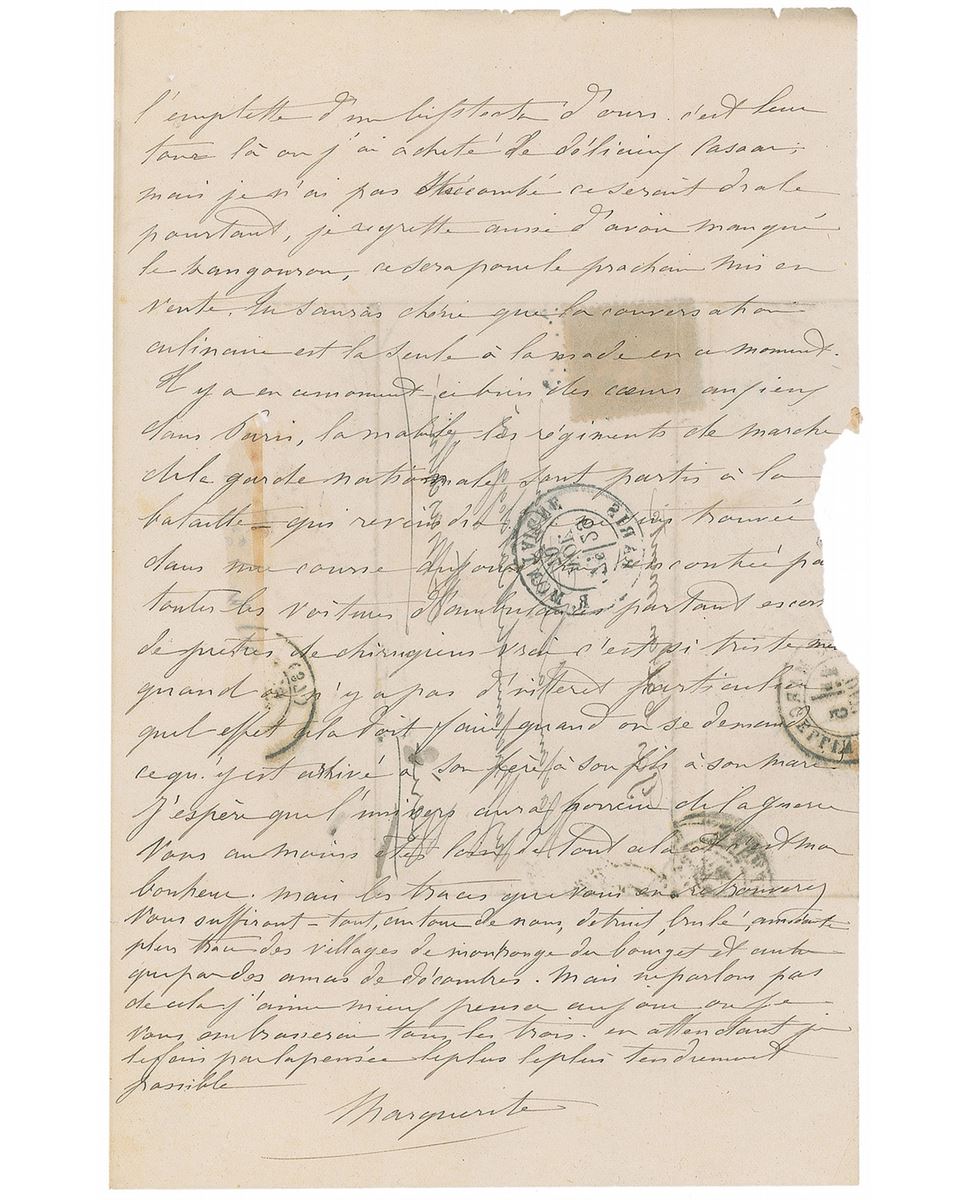 l'emplette d'un bifsteck d'ours. c'est leur
tour là on j'ai acheté de délicieux Casoar,
mais je n'ai pas succombé ce serait drole
pourtant, je regrette aussi d'avoir manqué
le kangourou, ce sera pour le prochain mis en
vente. tu sauras chérie que la conversation
culinaire est la seule à la mode en ce moment.
Il y a en ce moment ici bien des cœurs anxieux
dans Paris, la mobile les régiments de marche
de la garde nationale sont partis à la
bataille – qui reviendra me suis trouvée
dans ma course
toutes les voitures d'ambulances partant
de prêtres de chirurgiens vrai c'est si triste
quand on n'y a pas d'intéret particulier
quel effet cela doit faire quand on se demande
ce qu'y est arrivé à son père à son fils à son mari
J'espère que l'univers aura horreur de la guerre
Vous au moins êtes loin de tout cela c'est mon
bonheur. mais les traces que vous en retrouverez
vous suffiront – tout, autour de nous, détruit, brulé,
plus trace des villages de montrouge du bourget et autre
que par des amas de décombres. Mais ne parlons pas
de cela j'aime mieux penser au jour ou je
vous embrasserai tous les trois. en attendant je
le fais par la pensée le plus le plus tendrement
possible
Marguerite
PARIS
R. MONTAIGNE
28
NOV.
70